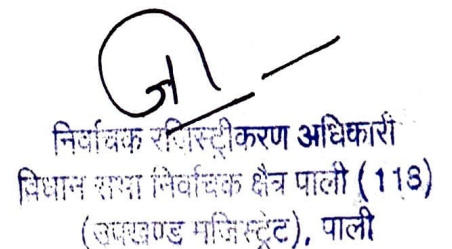 निर्वाचक रजिस्ट्रीकरण अधिकारी
विधान सभा निर्वाचक क्षैत्र पाली (118)
(उपखण्ड मजिस्ट्रेट), पाली